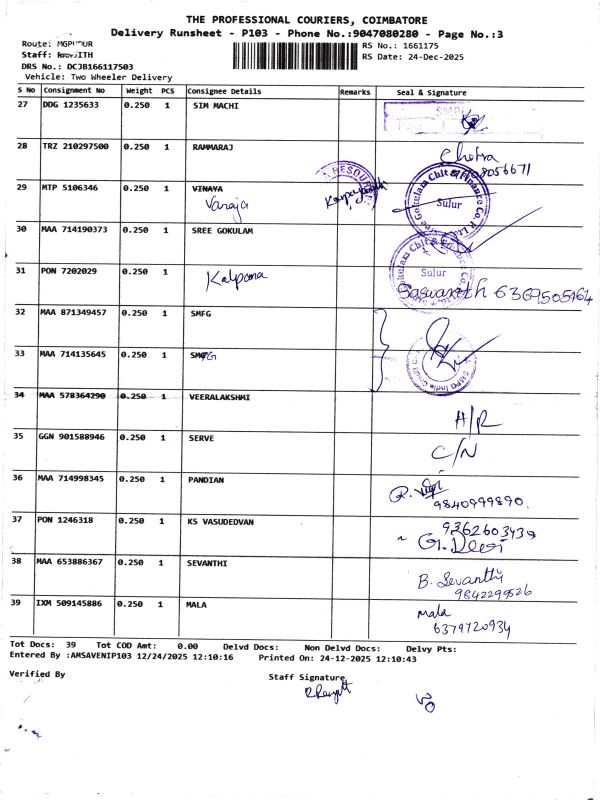 THE PROFESSIONAL COURIERS, COIMBATORE
Delivery Runsheet - P103 - Phone No.:9047080280 - Page No.:3
Route: MGPUDUR
Staff:
DRS No.: DCJB166117503
Vehicle: Two Wheeler Delivery
RS No.: 1661175
RS Date: 24-Dec-2025
S No Consignment No Weight PCS Consignee Details Remarks Seal & Signature
27 DDG 1235633 0.250 1 SIM MACHI
28 TRZ 210297500 0.250 1 RAMMARAJ Chitra 8056671
29 MTP 5106346 0.250 1 VINAYA Vanaja Sulur
30 MAA 714190373 0.250 1 SREE GOKULAM
31 PON 7202029 0.250 1 Kalpana Sulur 6369505964
32 MAA 871349457 0.250 1 SMFG
33 MAA 714135645 0.250 1 SMFG
34 MAA 578364290 0.250 1 VEERALAKSHMI H/R
35 GGN 901588946 0.250 1 SERVE C/N
36 MAA 714998345 0.250 1 PANDIAN 9840999890.
37 PON 1246318 0.250 1 KS VASUDEDVAN 9362603439
G. Devi
38 MAA 653886367 0.250 1 SEVANTHI B. Sevanthi
9842299526
39 IXM 509145886 0.250 1 MALA Mala
6379720934
Tot Docs: 39 Tot COD Amt: 0.00 Delvd Docs: Non Delvd Docs: Delvy Pts:
Entered By :AMSAVENIP103 12/24/2025 12:10:16 Printed On: 24-12-2025 12:10:43
Verified By Staff Signature